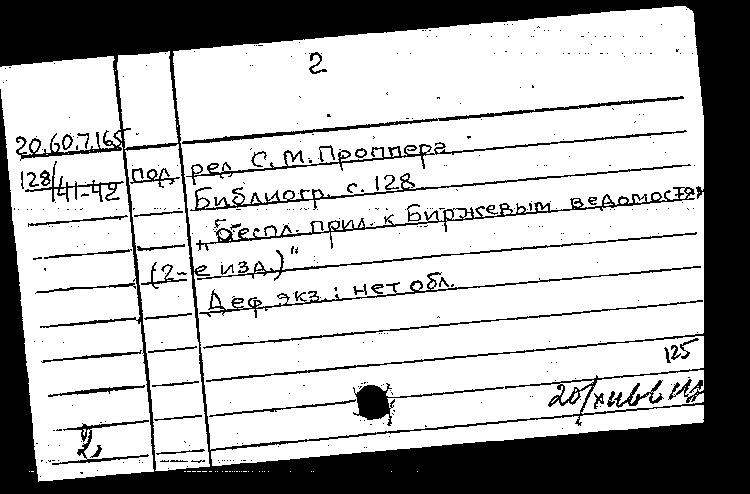 2
20.60.7.165
128/41-42
под ред. С. М. Проппера
Библиогр. с. 128
„Беспл. прил. к Биржевым ведомостям
(2-е изд.)"
Деф. экз.: нет обл.
125
2.